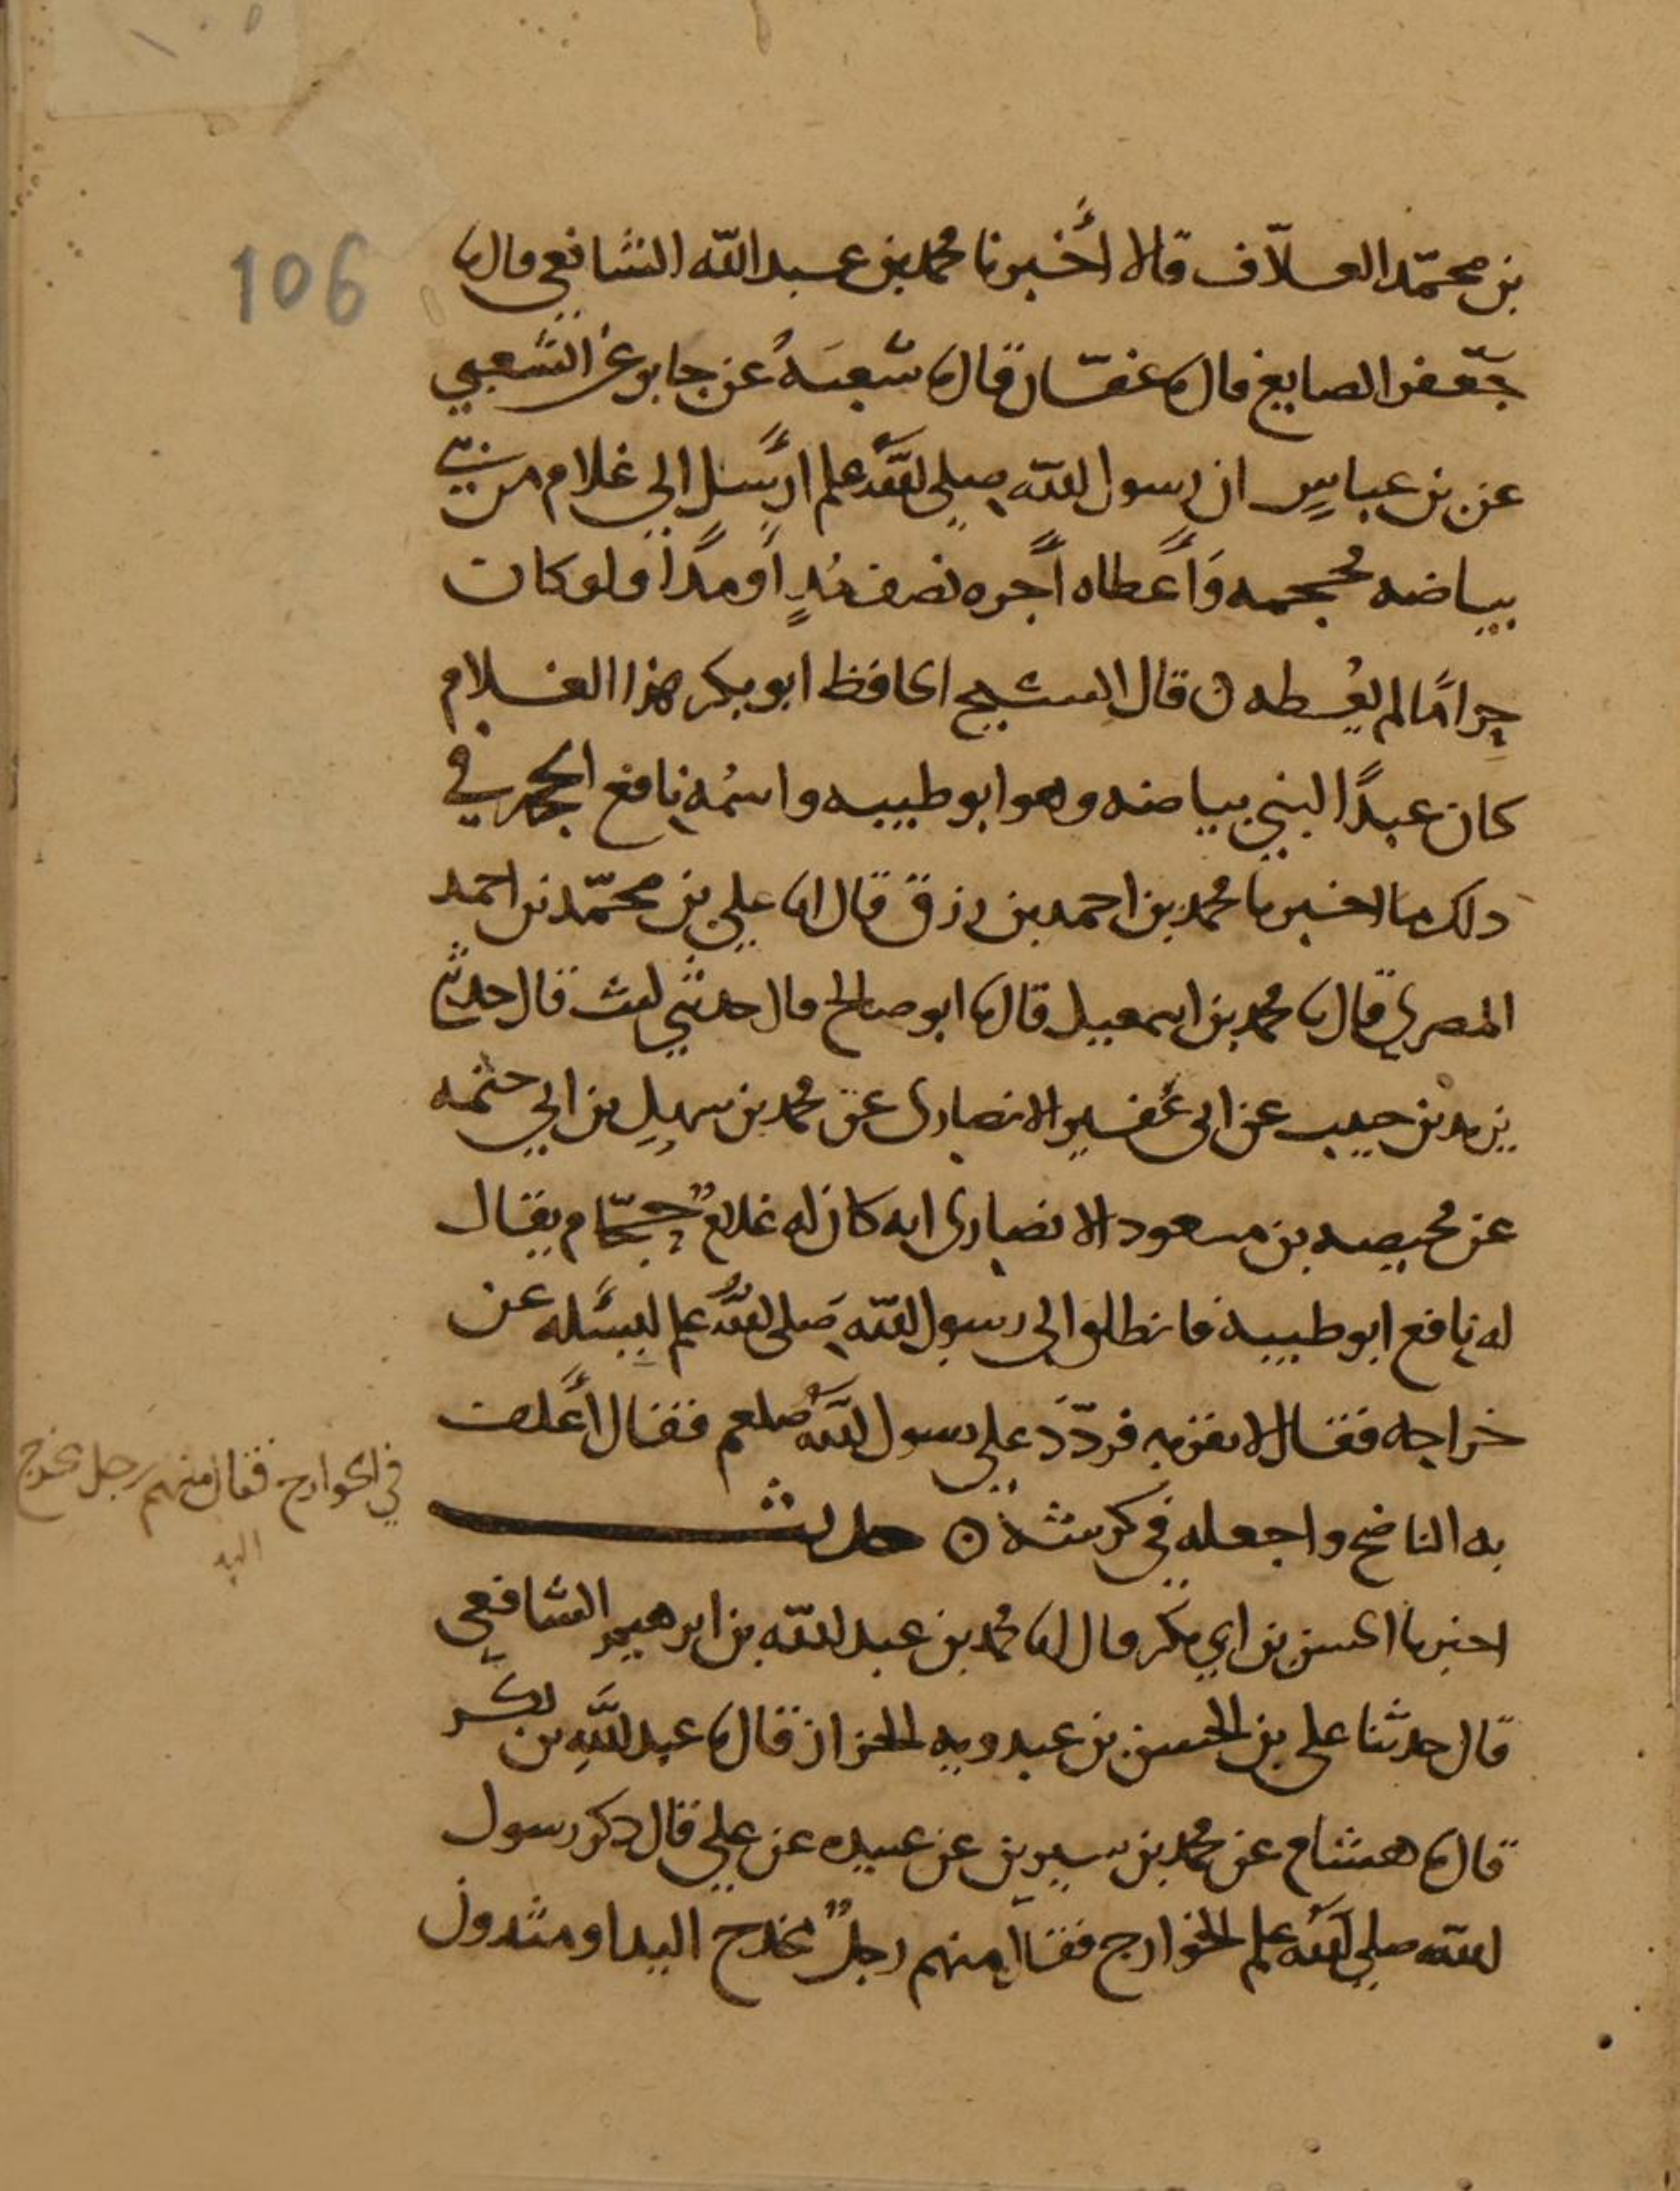 106
بن محمّد العلاّف قالا أخبرنا محمد بن عبد الله الشافعي قال ثنا
جعفر الصايغ قال ثنا عفّان قال ثنا شعبةُ عن جابر عن الشعبي
عن بن عباسٍ ان رسول الله صلى الله علم ارسل الي غلام من بني
بياضه فحجمه وَأعطاه أجره نصف مُدٍ أو مدًا ولو كان
حرامًا لم يعطه ن قال الشيخ الحافظ ابو بكر هذا الغلام
كان عبدًا لبني بياضه وهو ابو طيبه واسمُه نافع الحجه في
دلك ما اخبرنا محمد بن احمد بن رزق قال انا علي بن محمّد بن احمد
المصري قال ثنا محمد بن اسمعيل قال ثنا ابو صالح قال حدثني ليث قال حدثني
يزيد بن حبيب عن ابى عُفير الانصارى عن محمد بن سهل بن ابي حثمه
عن محيصه بن مسعود الانصارى انه كان له غلامٌ حجّام يقال
له نافع ابو طيبه فانطلق الى رسول الله صَلى اللهُ علم ليسئله عن
خراجه فقال لا تقربه فردّدَ علي رسول الله صلعم فقال أعلف
به الناضح واجعله في كرشه ن حديث
اخبرنا الحسن بن ابي بكر قال انا محمد بن عبد الله بن ابرهيم الشافعى
قال حدثنا على بن الحسن بن عبدويه الخزاز قال ثنا عبد الله بن بكر
قال ثنا هشام عن محمد بن سيرين عن عبيده عن علي قال ذكر رسول
الله صلي الله علم الخوارج فقال منهم رجلٌ مخدج اليد او مثدون
في الخوارج فقال منهم رجل مخدج
اليد